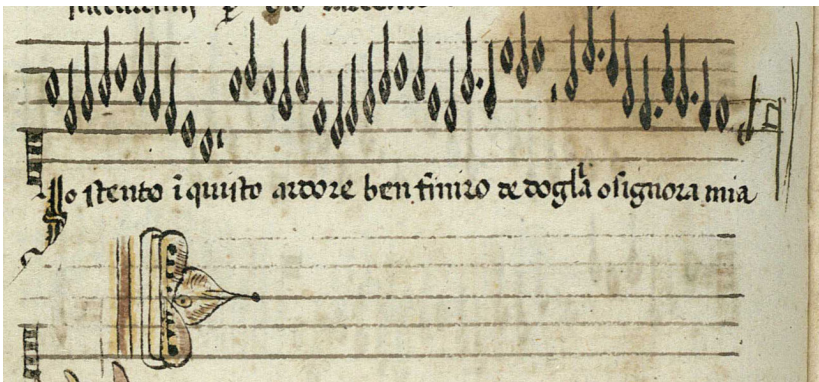 Io stento ī quisto ardore ben finiro de dogla o signora mia